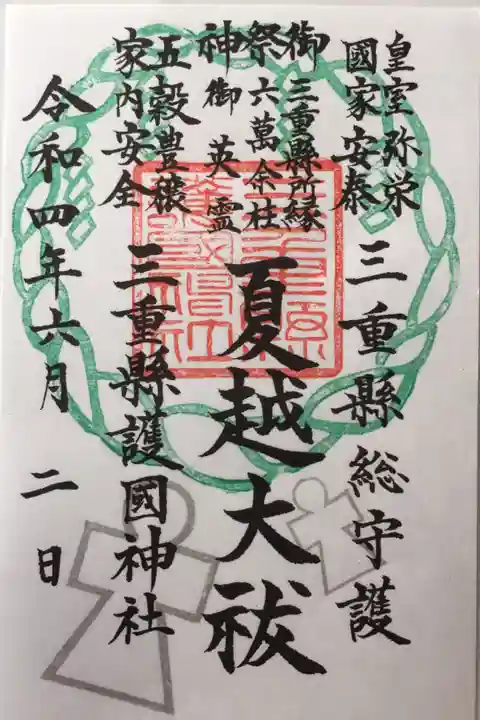 皇室弥栄
國家安泰
三重縣総守護
御祭神
三重縣所縁
六萬余社
御英霊
夏越大祓
五穀豊穣
家内安全
三重縣護國神社
令和四年六月二日